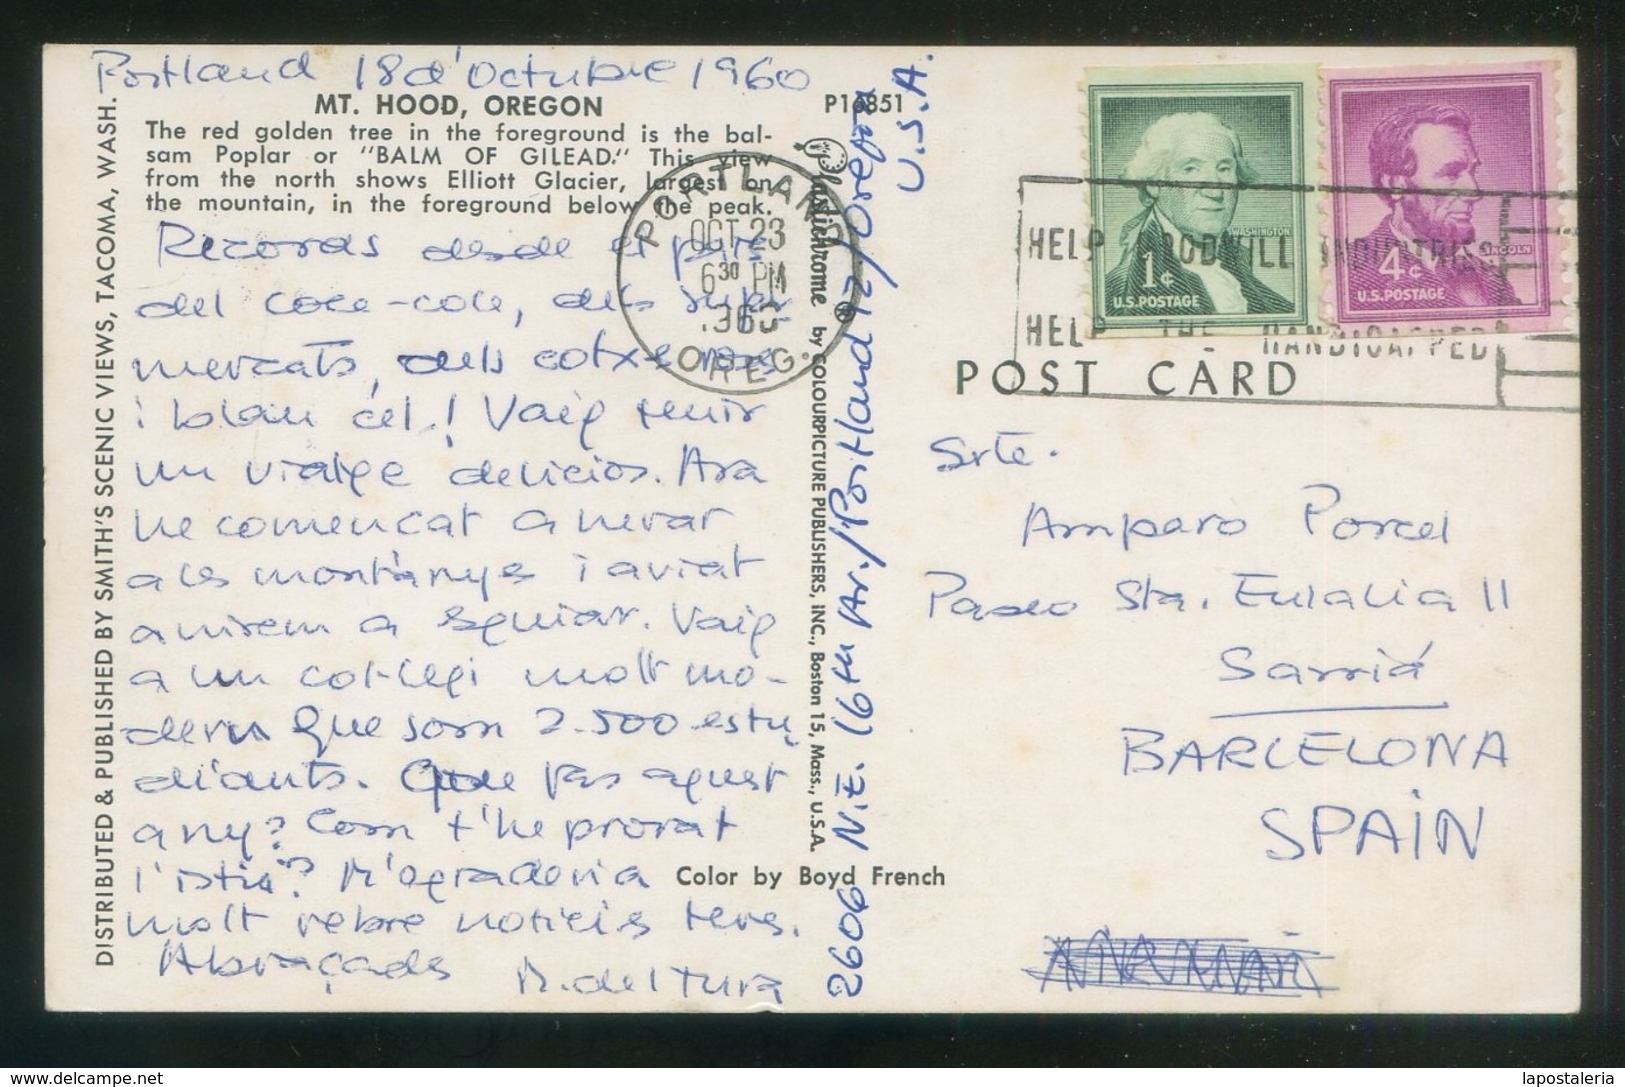 Portland 18 d'Octubre 1960
MT. HOOD, OREGON
P16851
The red golden tree in the foreground is the bal-
sam Poplar or "BALM OF GILEAD." This view
from the north shows Elliott Glacier, largest on
the mountain, in the foreground below the peak.
Records desde el país
del coca-cola, dels super
mercats, dels cotxe rosa
i blau cel! Vaig tenir
un viatge deliciós. Ara
ha comencat a nevar
a les montànyes i aviat
anirem a esquiar. Vaig
a un col·legi molt mo-
dern que som 2.500 estu
diants. Que fas aquest
any? Com t'he provat
l'istiu? M'agradaria
molt rebre noticies teves.
Abraçades
M. del Tura
DISTRIBUTED & PUBLISHED BY SMITH'S SCENIC VIEWS, TACOMA, WASH.
Plastichrome ® by COLOURPICTURE PUBLISHERS, INC., Boston 15, Mass., U.S.A.
2606 N.E. 16th Av./Portland 12/Oregon
U.S.A.
Color by Boyd French
PORTLAND
OCT 23
6 30 PM
1960
OREG.
HELP GOODWILL INDUSTRIES
HELP THE HANDICAPPED
WASHINGTON
1¢
U.S. POSTAGE
LINCOLN
4¢
U.S. POSTAGE
POST CARD
Srta.
Amparo Porcel
Paseo Sta. Eulalia 11
Sarriá
BARCELONA
SPAIN
lapostaleria
www.todocoleccion.net